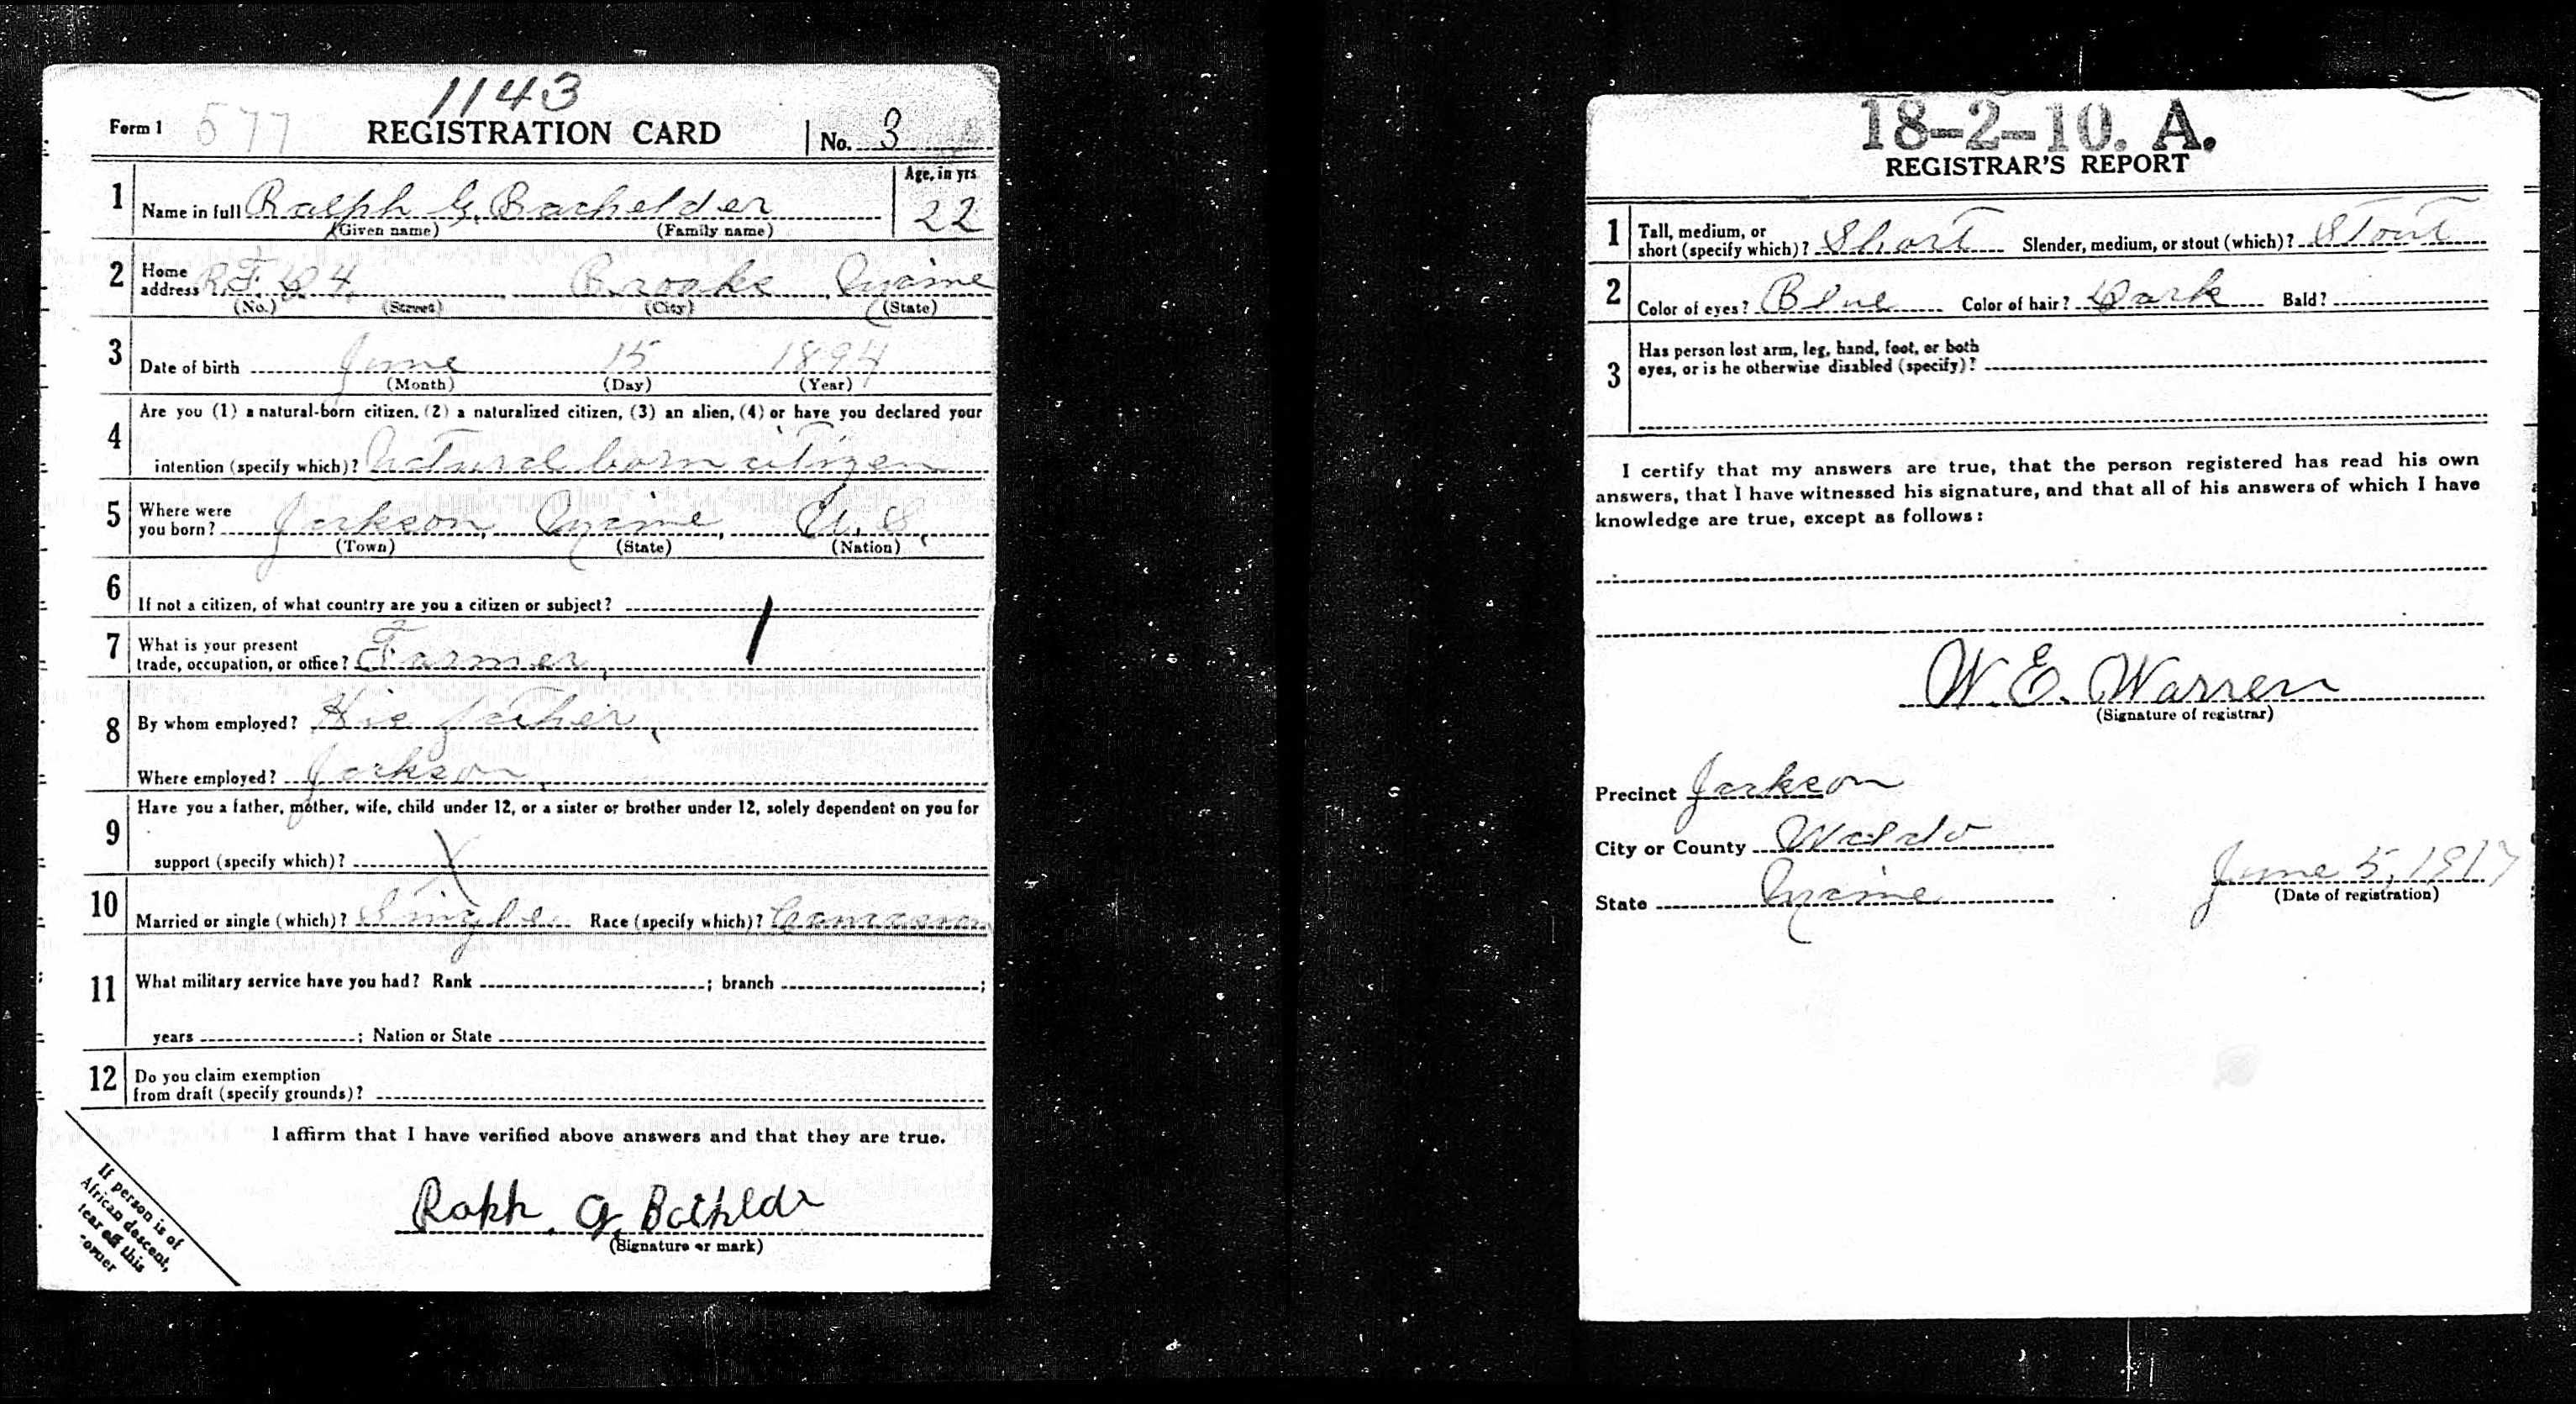 1143
Form 1 577 REGISTRATION CARD No. 3
1 Name in full Ralph G. Bachelder Age, in yrs 22
(Given name) (Family name)
2 Home address R.F.D 4, Brooks Maine
(No.) (Street) (City) (State)
3 Date of birth June 15 1894
(Month) (Day) (Year)
4 Are you (1) a natural-born citizen, (2) a naturalized citizen, (3) an alien, (4) or have you declared your
intention (specify which)? Natural born citizen
5 Where were you born? Jackson, Maine, U.S.
(Town) (State) (Nation)
6 If not a citizen, of what country are you a citizen or subject?
7 What is your present
trade, occupation, or office? Farmer
8 By whom employed? His father
Where employed? Jackson
9 Have you a father, mother, wife, child under 12, or a sister or brother under 12, solely dependent on you for
support (specify which)?
10 Married or single (which)? Single Race (specify which)? Caucasian
11 What military service have you had? Rank ; branch ;
years ; Nation or State
12 Do you claim exemption
from draft (specify grounds)?
I affirm that I have verified above answers and that they are true.
G.
(Signature or mark)
If person is of
African descent,
tear off this
corner
18-2-10. A.
REGISTRAR'S REPORT
1 Tall, medium, or
short (specify which)? Short Slender, medium, or stout (which)? Stout
2 Color of eyes? Blue Color of hair? Dark Bald?
3 Has person lost arm, leg, hand, foot, or both
eyes, or is he otherwise disabled (specify)?
I certify that my answers are true, that the person registered has read his own
answers, that I have witnessed his signature, and that all of his answers of which I have
knowledge are true, except as follows:
W. E. Warren
(Signature of registrar)
Precinct Jackson
City or County Waldo
State Maine
June 5, 1917
(Date of registration)